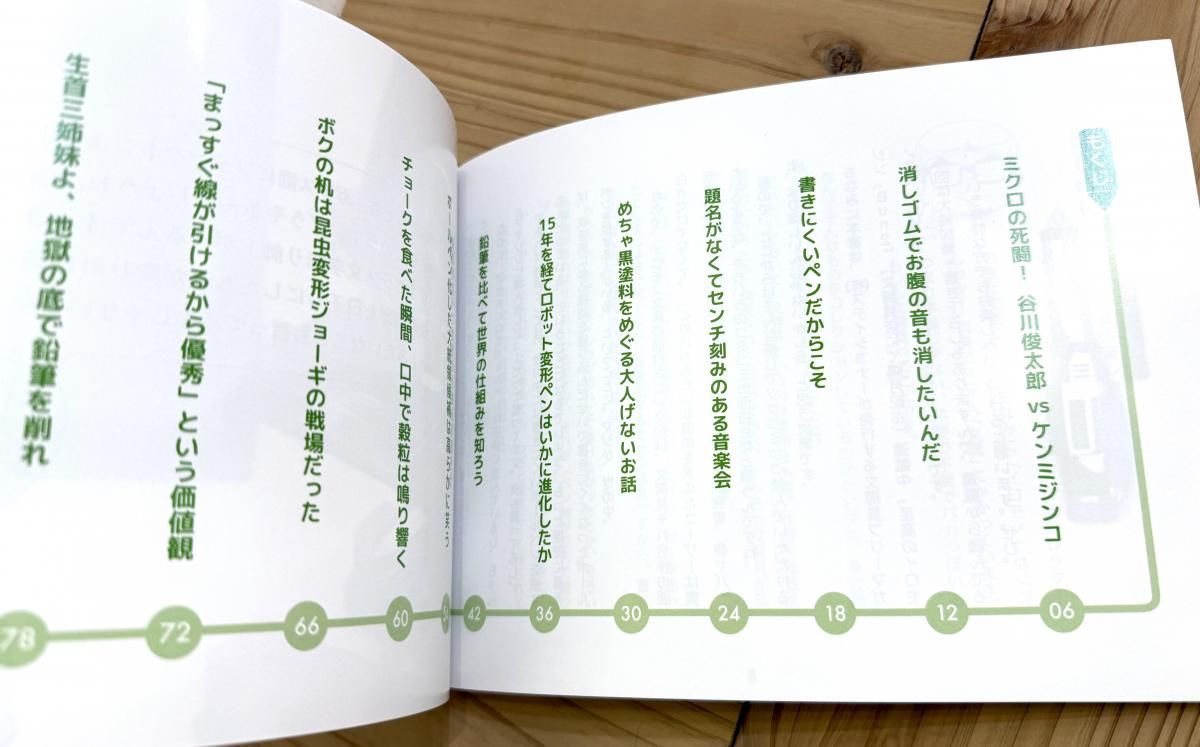 もくじ
ミクロの死闘！ 谷川俊太郎 vs ケンミジンコ
06
消しゴムでお腹の音も消したいんだ
12
書きにくいペンだからこそ
18
題名がなくてセンチ刻みのある音楽会
24
めちゃ黒塗料をめぐる大人げないお話
30
15年を経てロボット変形ペンはいかに進化したか
36
鉛筆を比べて世界の仕組みを知ろう
42
チョークを食べた瞬間、口中で穀粒は鳴り響く
60
ボクの机は昆虫変形ジョーギの戦場だった
66
「まっすぐ線が引けるから優秀」という価値観
72
生首三姉妹よ、地獄の底で鉛筆を削れ
78